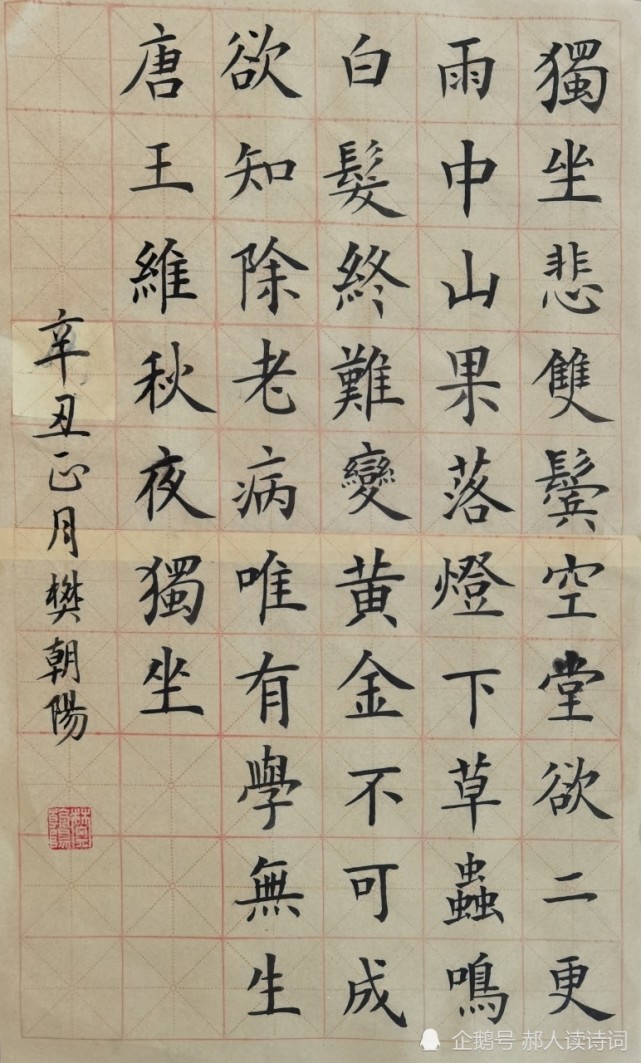 獨坐悲雙鬢空堂欲二更
雨中山果落燈下草蟲鳴
白髮終難變黃金不可成
欲知除老病唯有學無生
唐王維秋夜獨坐
辛丑正月樊朝陽
企鹅号 郝人读诗词